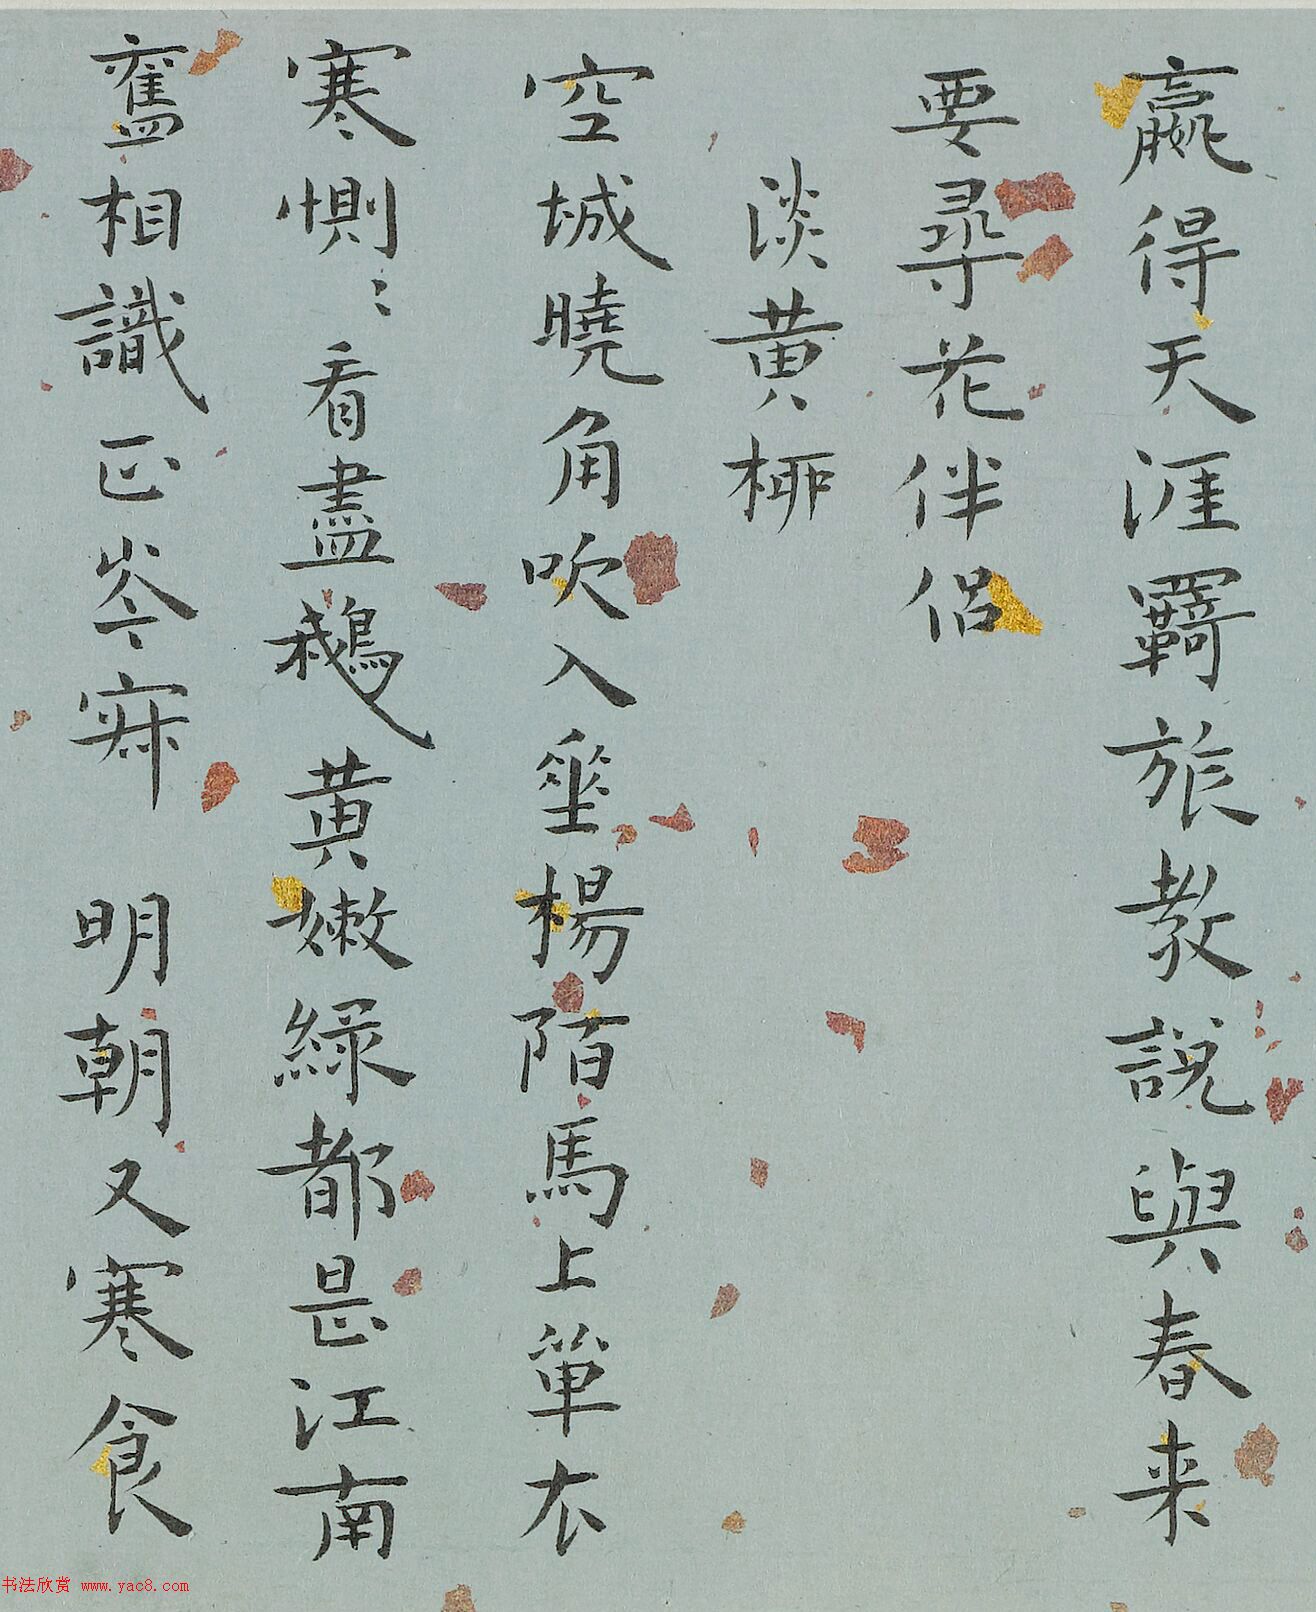 嬴得天涯羇旅教說與春来
要尋花伴侣
淡黄桺
空城曉角吹入垂楊陌馬上單衣
寒惻〻看盡鵝黄嫩緑都是江南
舊相識正岑寂 明朝又寒食
书法欣赏 www.yac8.com